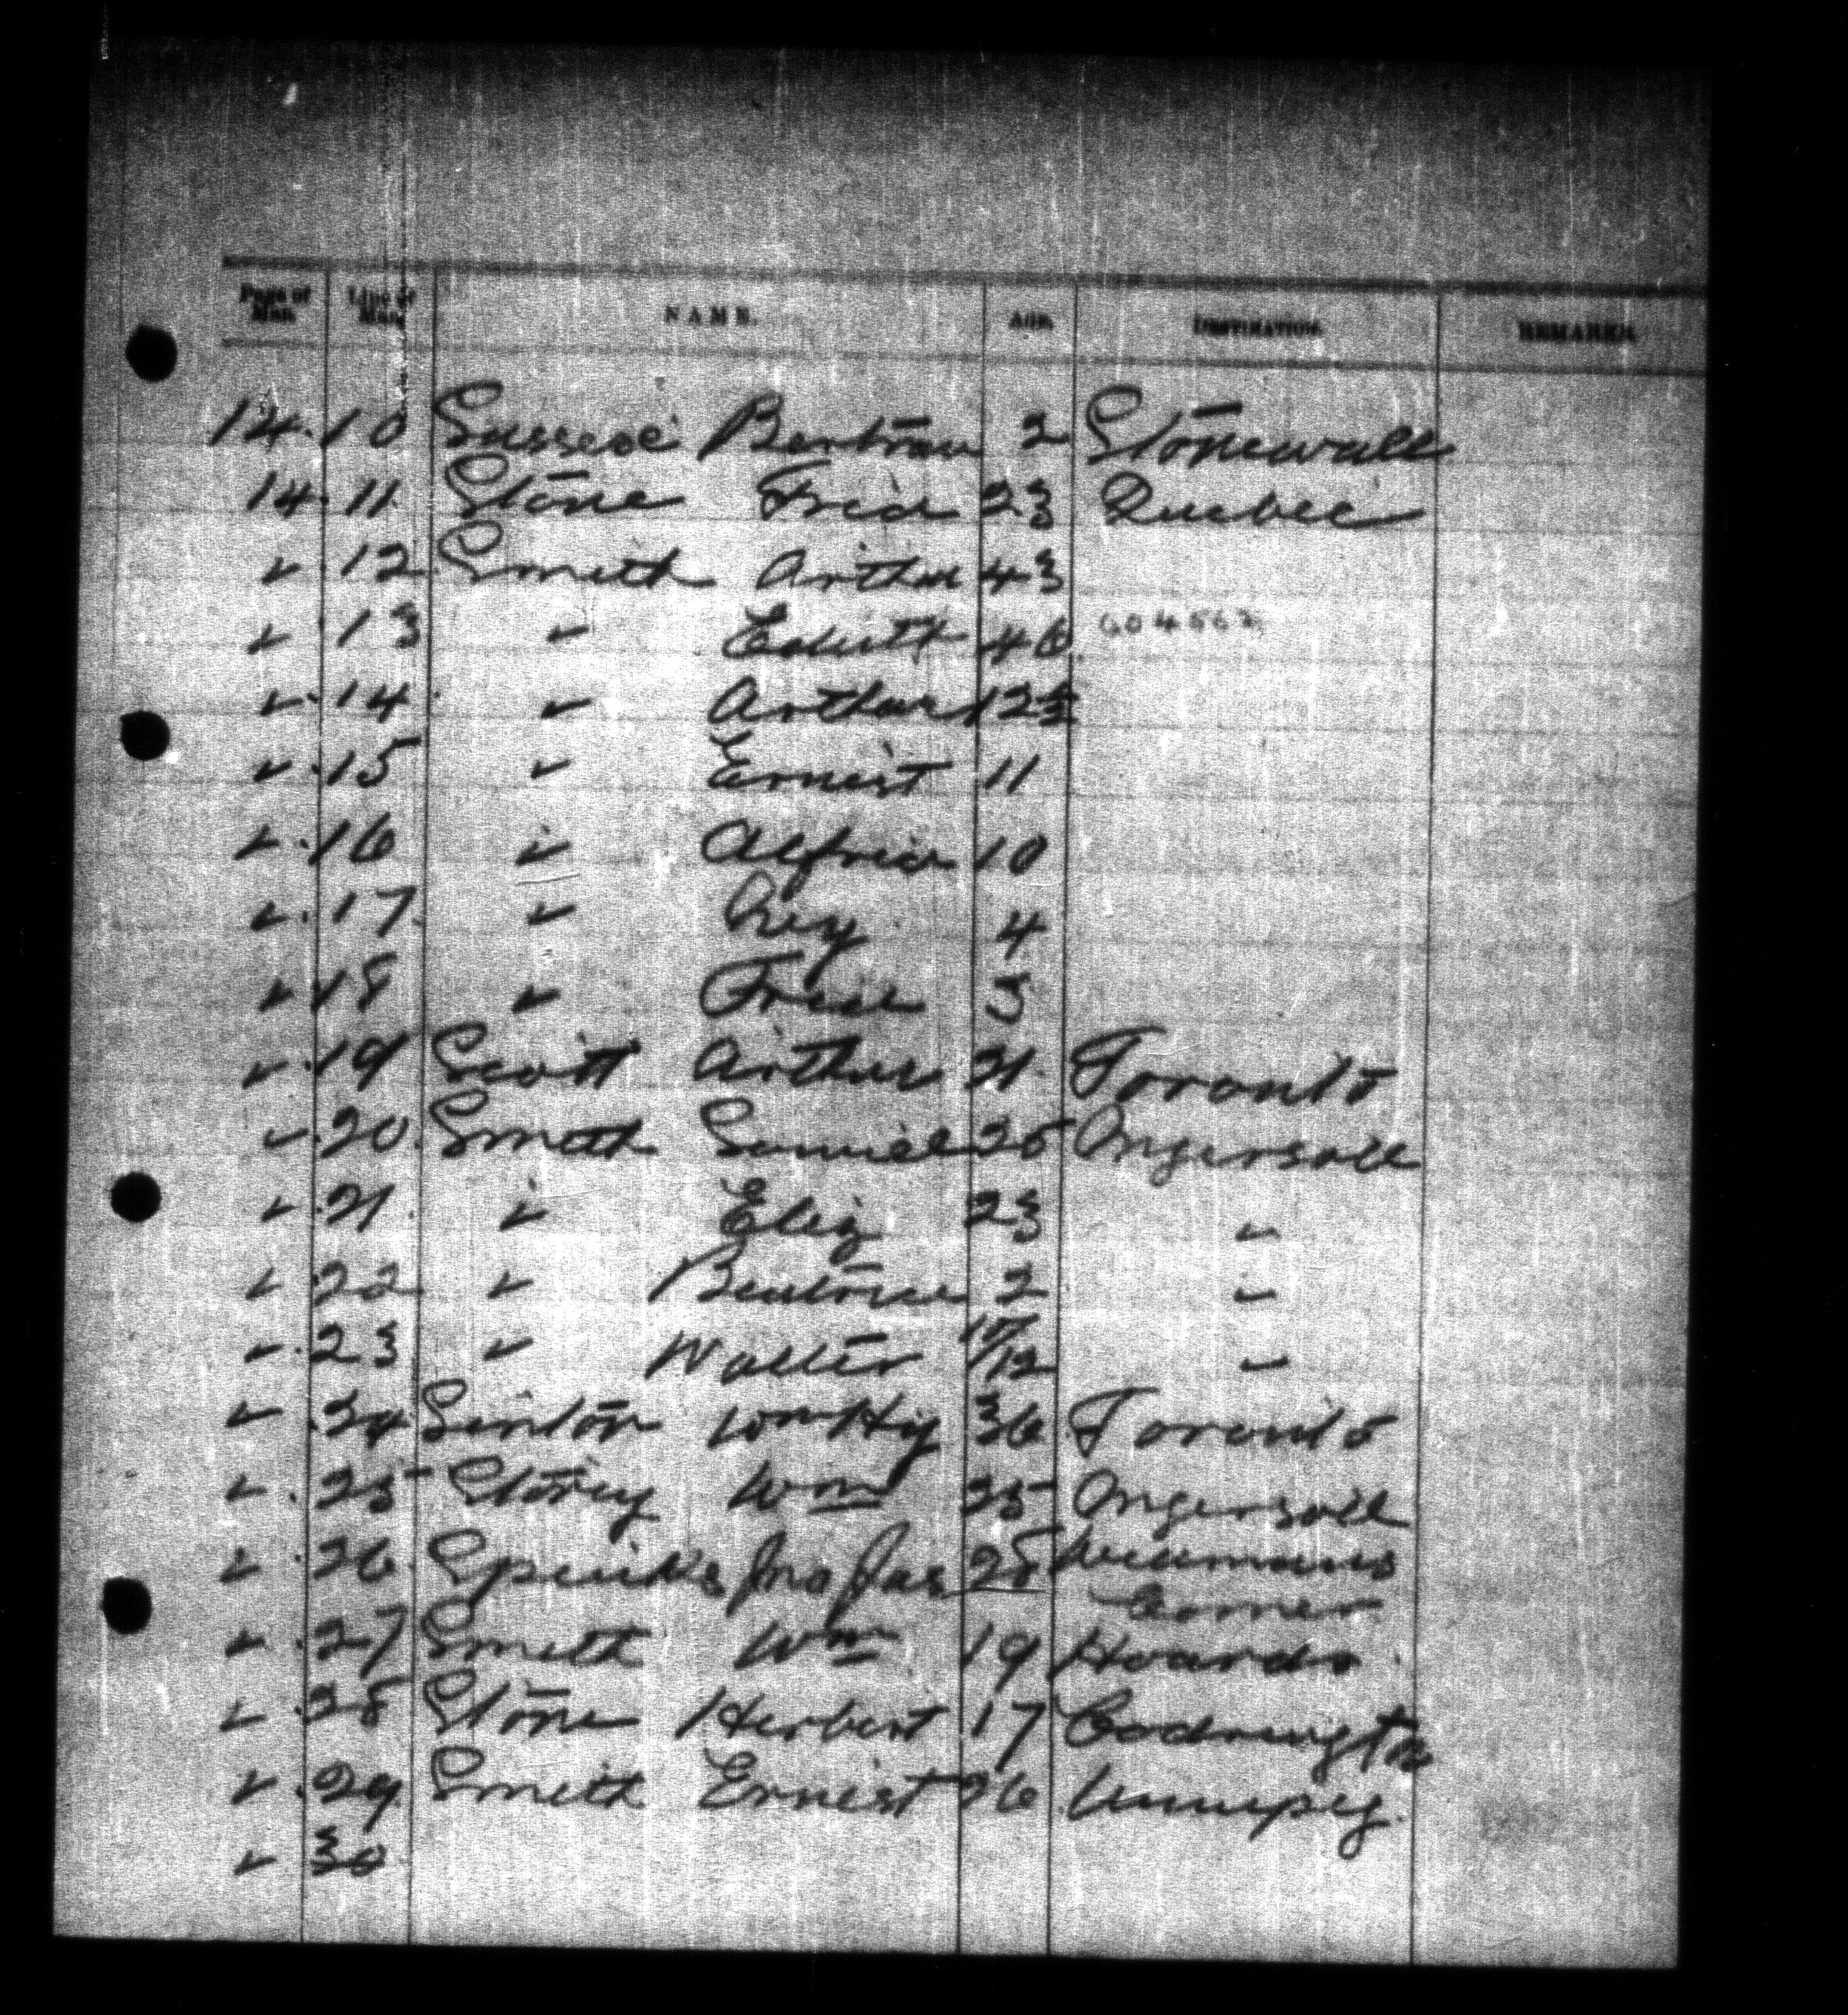 Page of Man. Line of Man. NAME. AGE. DESTINATION. REMARKS.
14 10 Bertram 2 Stonewall
14 11 Stone Fred 23 Quebec
" 12 Smith Arthur 43
" 13 " Edith 46 604562
" 14 " Arthur 12½
" 15 " Ernest 11
" 16 " Alfred 10
" 17 " Reg 4
" 18 " Fred 3
" 19 Scott Arthur 21 Toronto
" 20 Smith Samuel 25 Ingersoll
" 21 " Eliz 23 "
" 22 " Beatrice 2 "
" 23 " Walter 10/12 "
" 24 Sinton Wm Hy 36 Toronto
" 25 Storey Wm 35 Ingersoll
" 26 Spinks Jno Jas 28
Corner
" 27 Smith Wm 19 Hoards
" 28 Stone Herbert 17 Codrington
" 29 Smith Ernest 26 Winnipeg
" 30